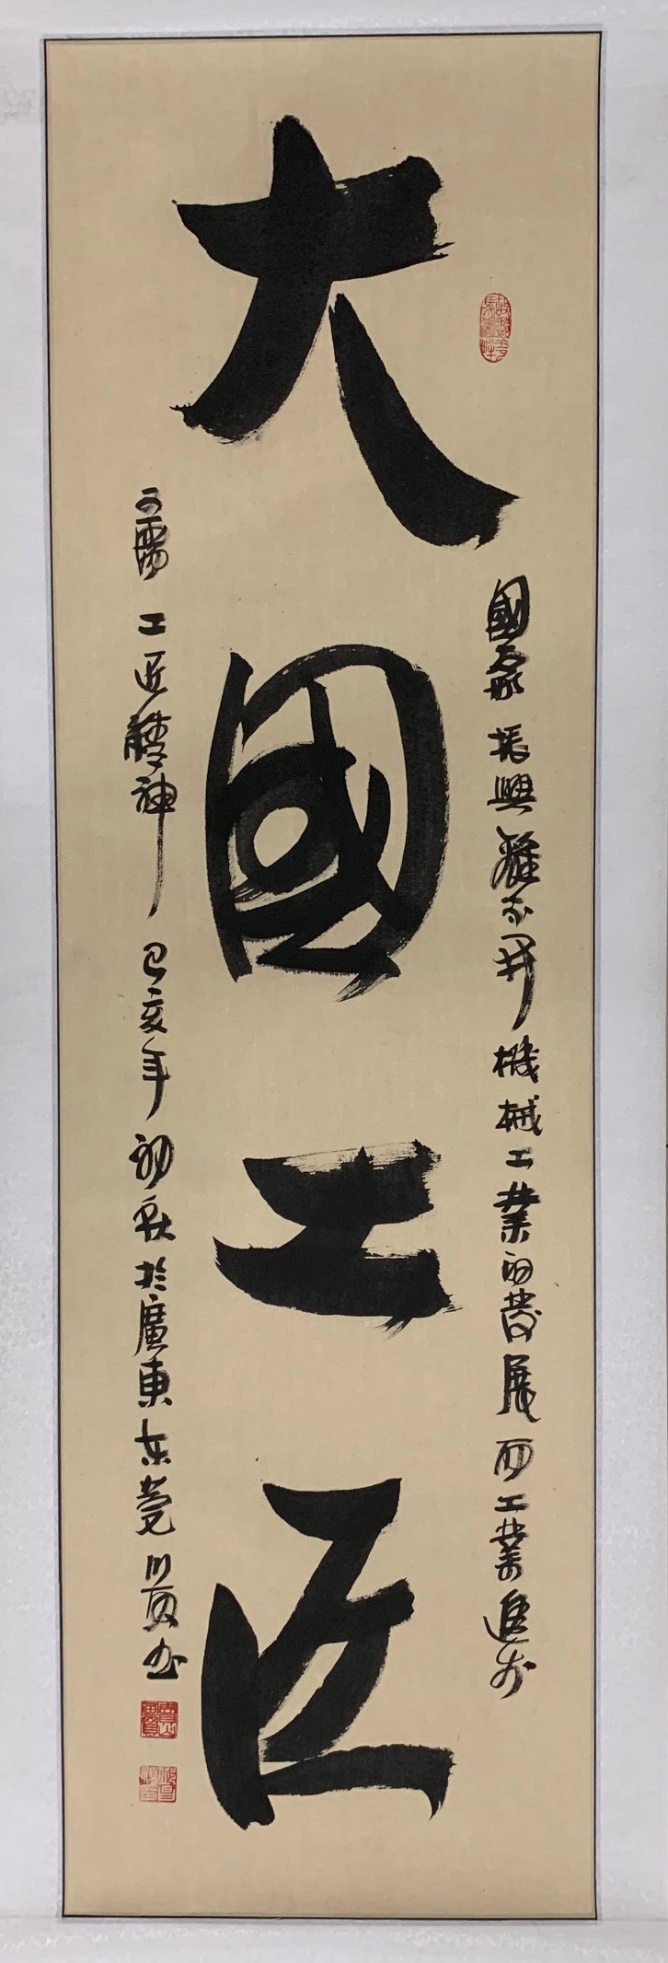 大國工匠
國家振興離不開機械工業的發展而工業進步
需工匠精神己亥年初秋於廣東东莞